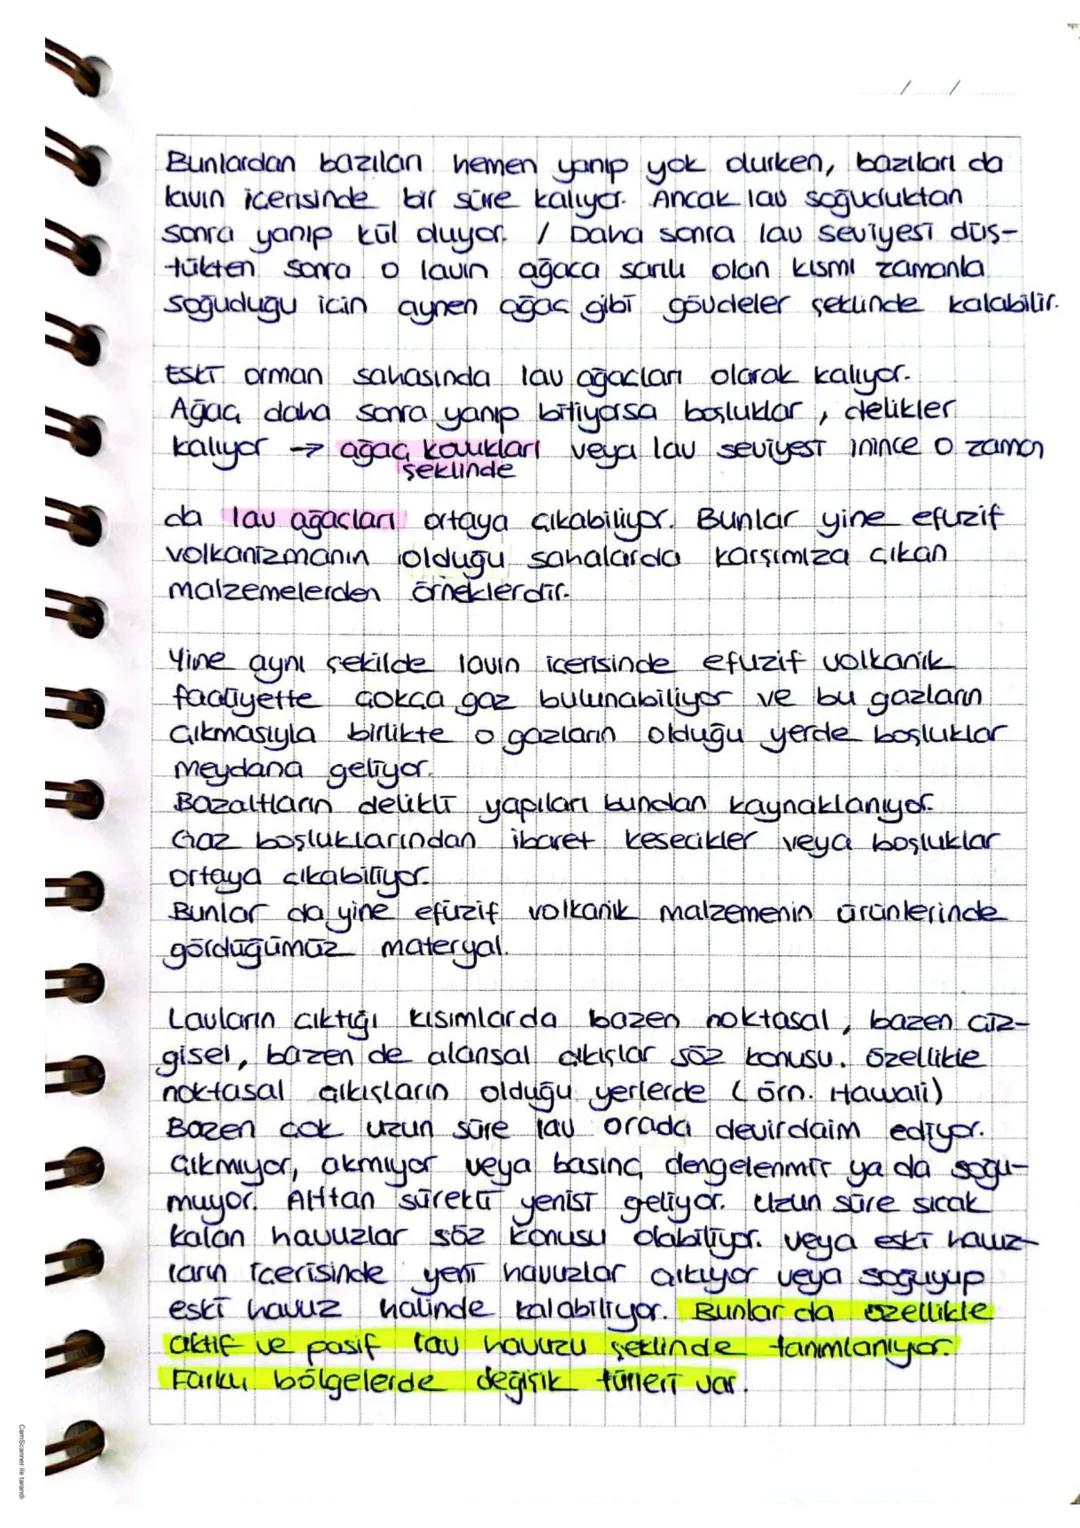 / /
Bunlardan bazıları hemen yanıp yok olurken, bazıları da
lavın içerisinde bir süre kalıyor. Ancak lav soğuduktan
sonra yanıp kül oluyor. / Daha sonra lav seviyesi düş-
tükten sonra o lavın ağaca sarılı olan kısmı zamanla
soğuduğu için aynen ağaç gibi gövdeler şeklinde kalabilir.
Eski orman sahasında lav ağaçları olarak kalıyor.
Ağaç daha sonra yanıp bitiyorsa boşluklar, delikler
kalıyor → ağaç kovukları veya lav seviyesi inince o zaman
şeklinde
da lav ağaçları ortaya çıkabiliyor. Bunlar yine efuzif
volkanizmanın olduğu sahalarda karşımıza çıkan
malzemelerden örneklerdir.
Yine aynı şekilde lavın içerisinde efuzif volkanik
faaliyette çokça gaz bulunabiliyor ve bu gazların
çıkmasıyla birlikte o gazların olduğu yerde boşluklar
meydana geliyor.
Bazaltların delikli yapıları bundan kaynaklanıyor.
Gaz boşluklarından ibaret kesecikler veya boşluklar
ortaya çıkabiliyor.
Bunlar da yine efüzif volkanik malzemenin ürünlerinde
gördüğümüz materyal.
Lavların çıktığı kısımlarda bazen noktasal, bazen çiz-
gisel, bazen de alansal çıkışlar söz konusu. Özellikle
noktasal çıkışların olduğu yerlerde (örn. Hawaii)
Bazen çok uzun süre lav orada devirdaim ediyor.
Çıkmıyor, akmıyor veya basınç dengelenmiş ya da soğu-
muyor. Alttan sürekli yenisi geliyor. Uzun süre sıcak
kalan havuzlar söz konusu olabiliyor. Veya eski havuz-
ların içerisinde yeni havuzlar çıkıyor veya soğuyup
eski havuz halinde kalabiliyor. Bunlar da özellikle
aktif ve pasif lav havuzu şeklinde tanımlanıyor.
Farklı bölgelerde değişik türleri var.
CamScanner ile tarandı